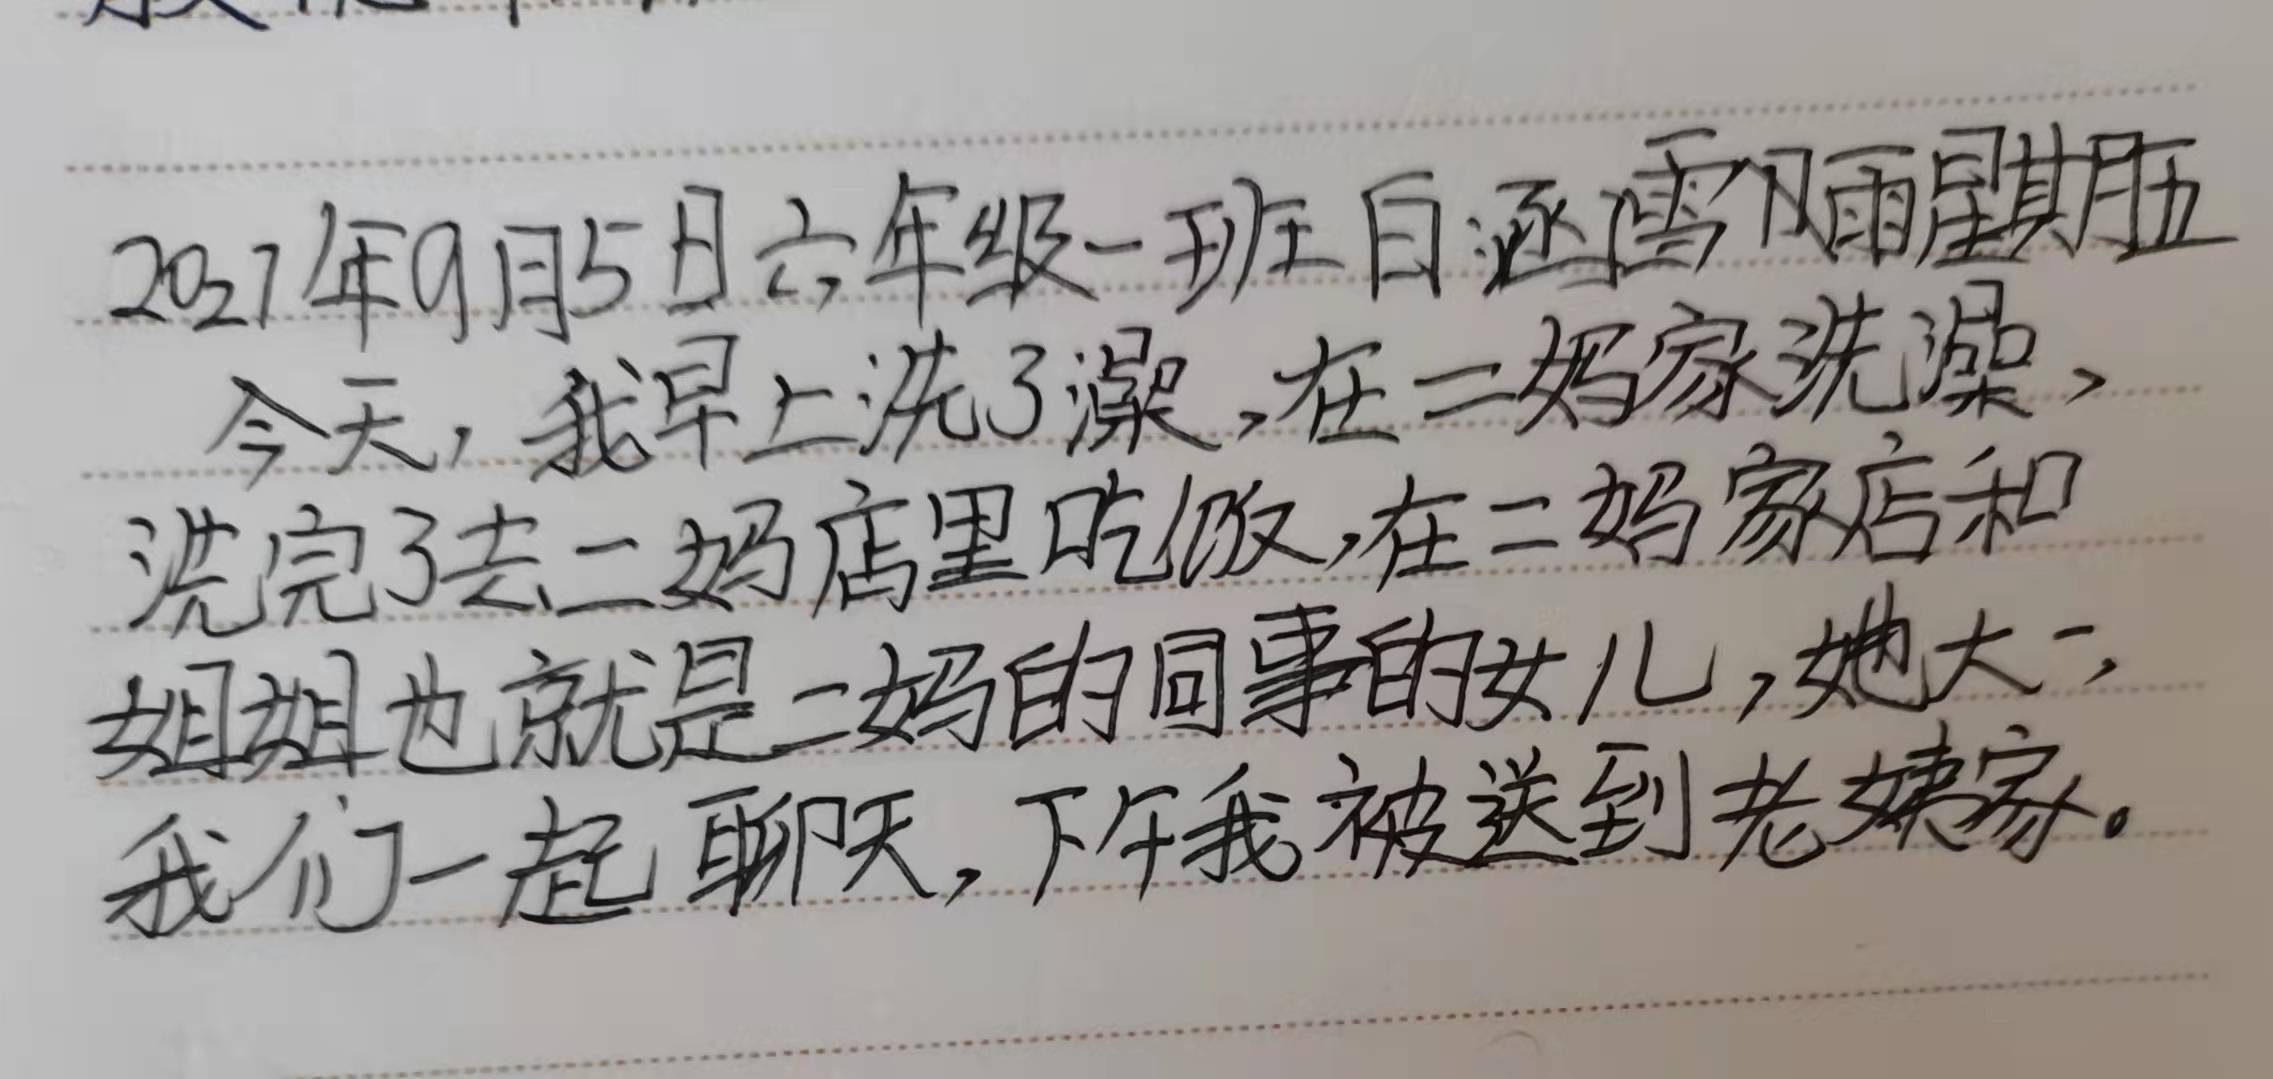 2021年9月5日六年级一班白涵雪小雨星期五
今天,我早上洗了澡,在二妈家洗澡,
洗完了去二妈店里吃饭,在二妈家店和
姐姐也就是二妈的同事的女儿,她大一,
我们一起聊天,下午我被送到老姨家。